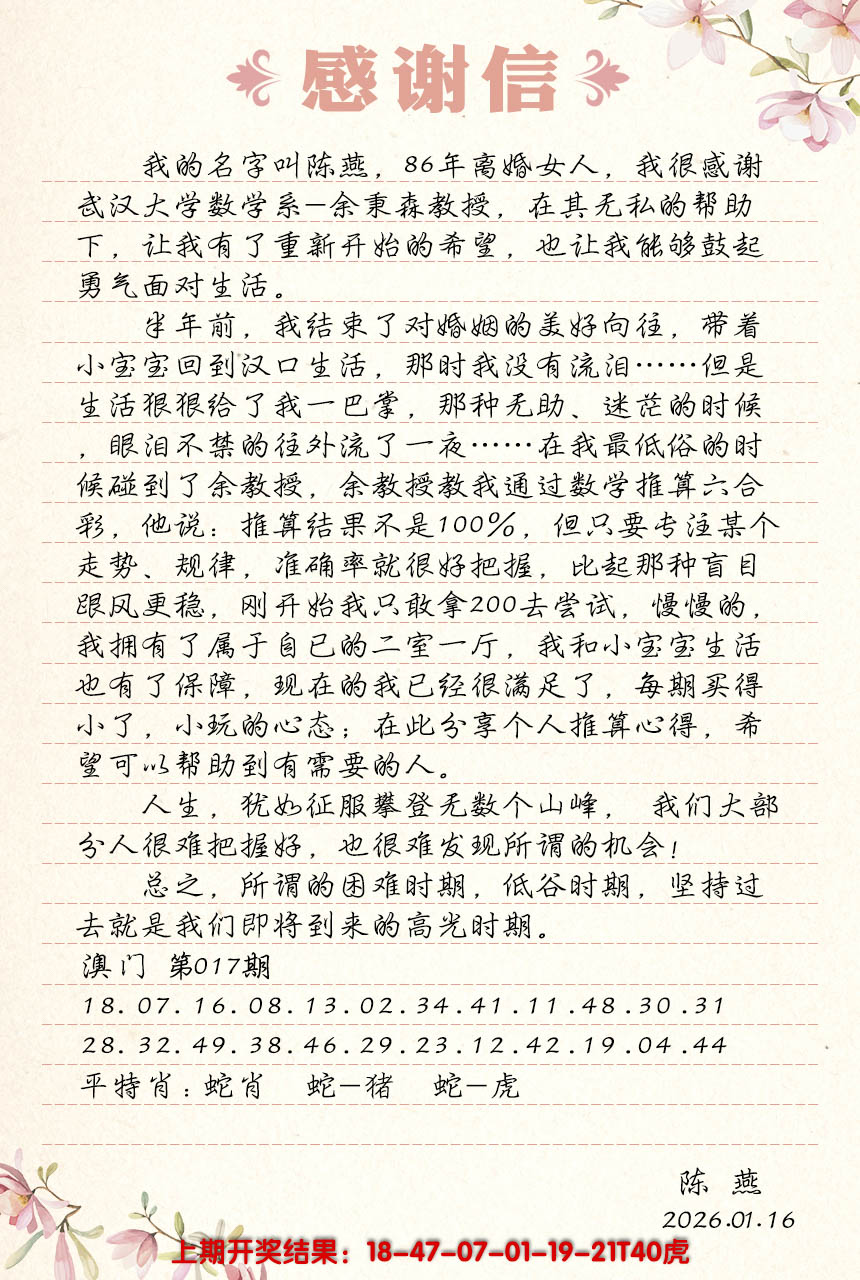 感谢信
我的名字叫陈燕，86年离婚女人，我很感谢
武汉大学数学系—余秉森教授，在其无私的帮助
下，让我有了重新开始的希望，也让我能够鼓起
勇气面对生活。
半年前，我结束了对婚姻的美好向往，带着
小宝宝回到汉口生活，那时我没有流泪……但是
生活狠狠给了我一巴掌，那种无助、迷茫的时候
，眼泪不禁的往外流了一夜……在我最低俗的时
候碰到了余教授，余教授教我通过数学推算六合
彩，他说：推算结果不是100%，但只要专注某个
走势、规律，准确率就很好把握，比起那种盲目
跟风更稳，刚开始我只敢拿200去尝试，慢慢的，
我拥有了属于自已的二室一厅，我和小宝宝生活
也有了保障，现在的我已经很满足了，每期买得
小了，小玩的心态；在此分享个人推算心得，希
望可以帮助到有需要的人。
人生，犹如征服攀登无数个山峰， 我们大部
分人很难把握好，也很难发现所谓的机会！
总之，所谓的困难时期，低谷时期，坚持过
去就是我们即将到来的高光时期。
澳门 第017期
18.07.16.08.13.02.34.41.11.48.30.31
28.32.49.38.46.29.23.12.42.19.04.44
平特肖：蛇肖 蛇—猪 蛇—虎
陈 燕
2026.01.16
上期开奖结果：18-47-07-01-19-21T40虎